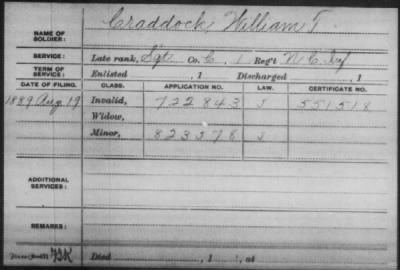 NAME OF SOLDIER: Craddock, William T.
SERVICE: Late rank, Sgt Co. C, 1 Reg't N.C. Inf
TERM OF SERVICE: Enlisted , 1 Discharged , 1
DATE OF FILING. CLASS. APPLICATION NO. LAW. CERTIFICATE NO.
1889 Aug. 19 Invalid, 722843 J 551518
Widow,
Minor, 823578 J
ADDITIONAL SERVICES:
REMARKS:
Died , 1 , at